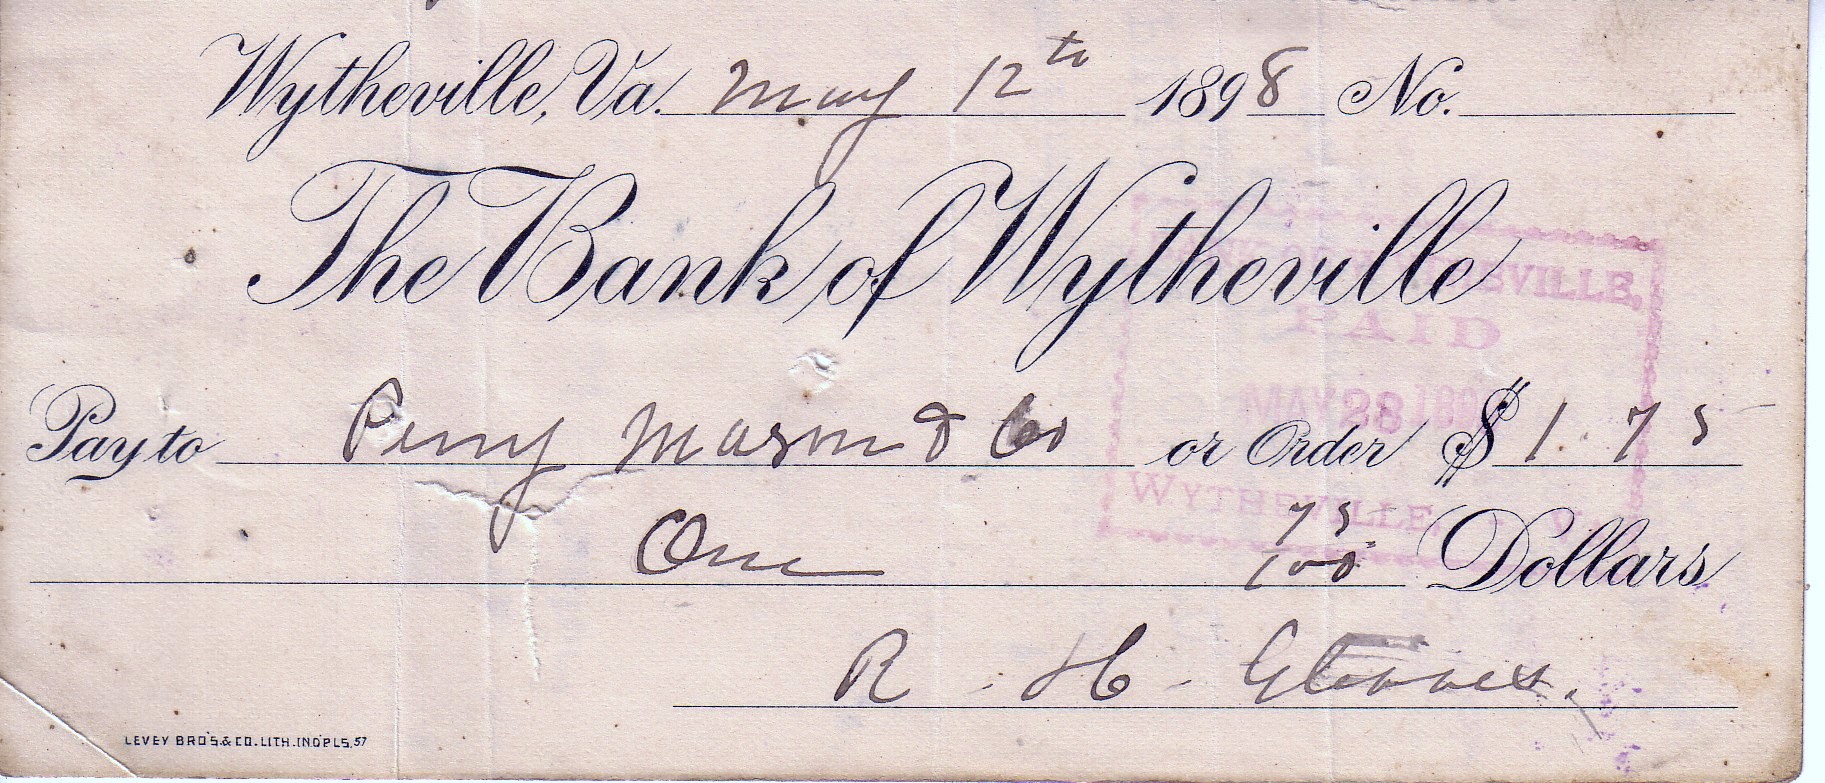 Wytheville, Va. May 12th 1898 No.
The Bank of Wytheville
SVILLE.
PAID
MAY 28 189
Pay to Perry Mason & Co or Order $1.75
WYTHEVILLE
One 75/100 Dollars
R. H. Gleaves.
LEVEY BRO'S. & CO. LITH. INDPLS. 57